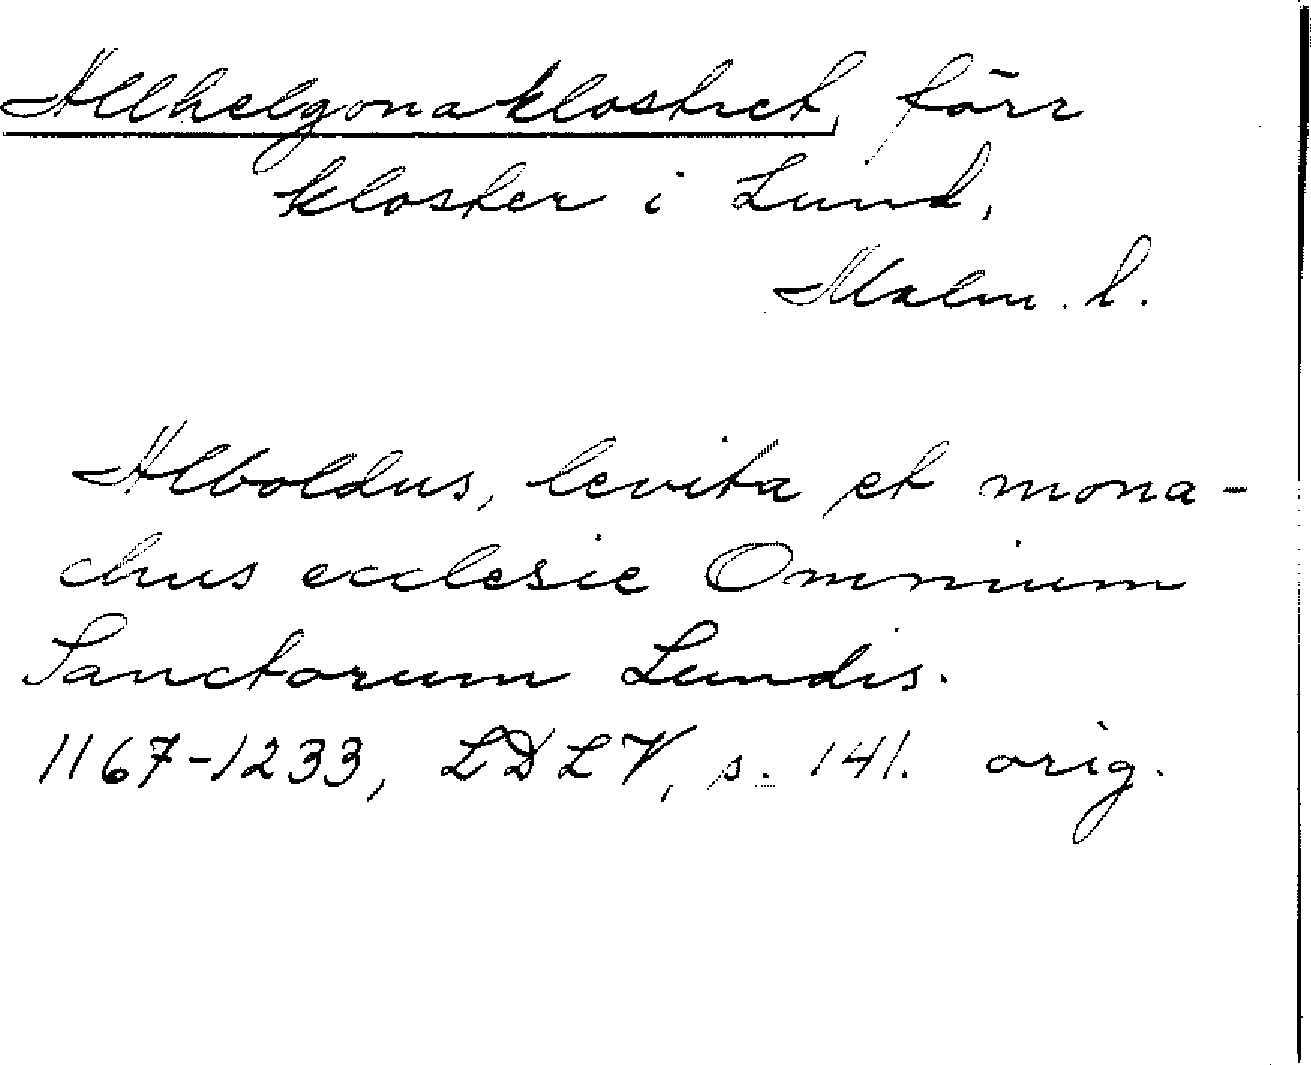 Allhelgonaklostret, förr
kloster i Lund,
Malm. l.
Alboldus, levita et mona-
chus ecclesie Omnium
Sanctorum Lundis.
1167-1233, LDLV, s. 141. orig.